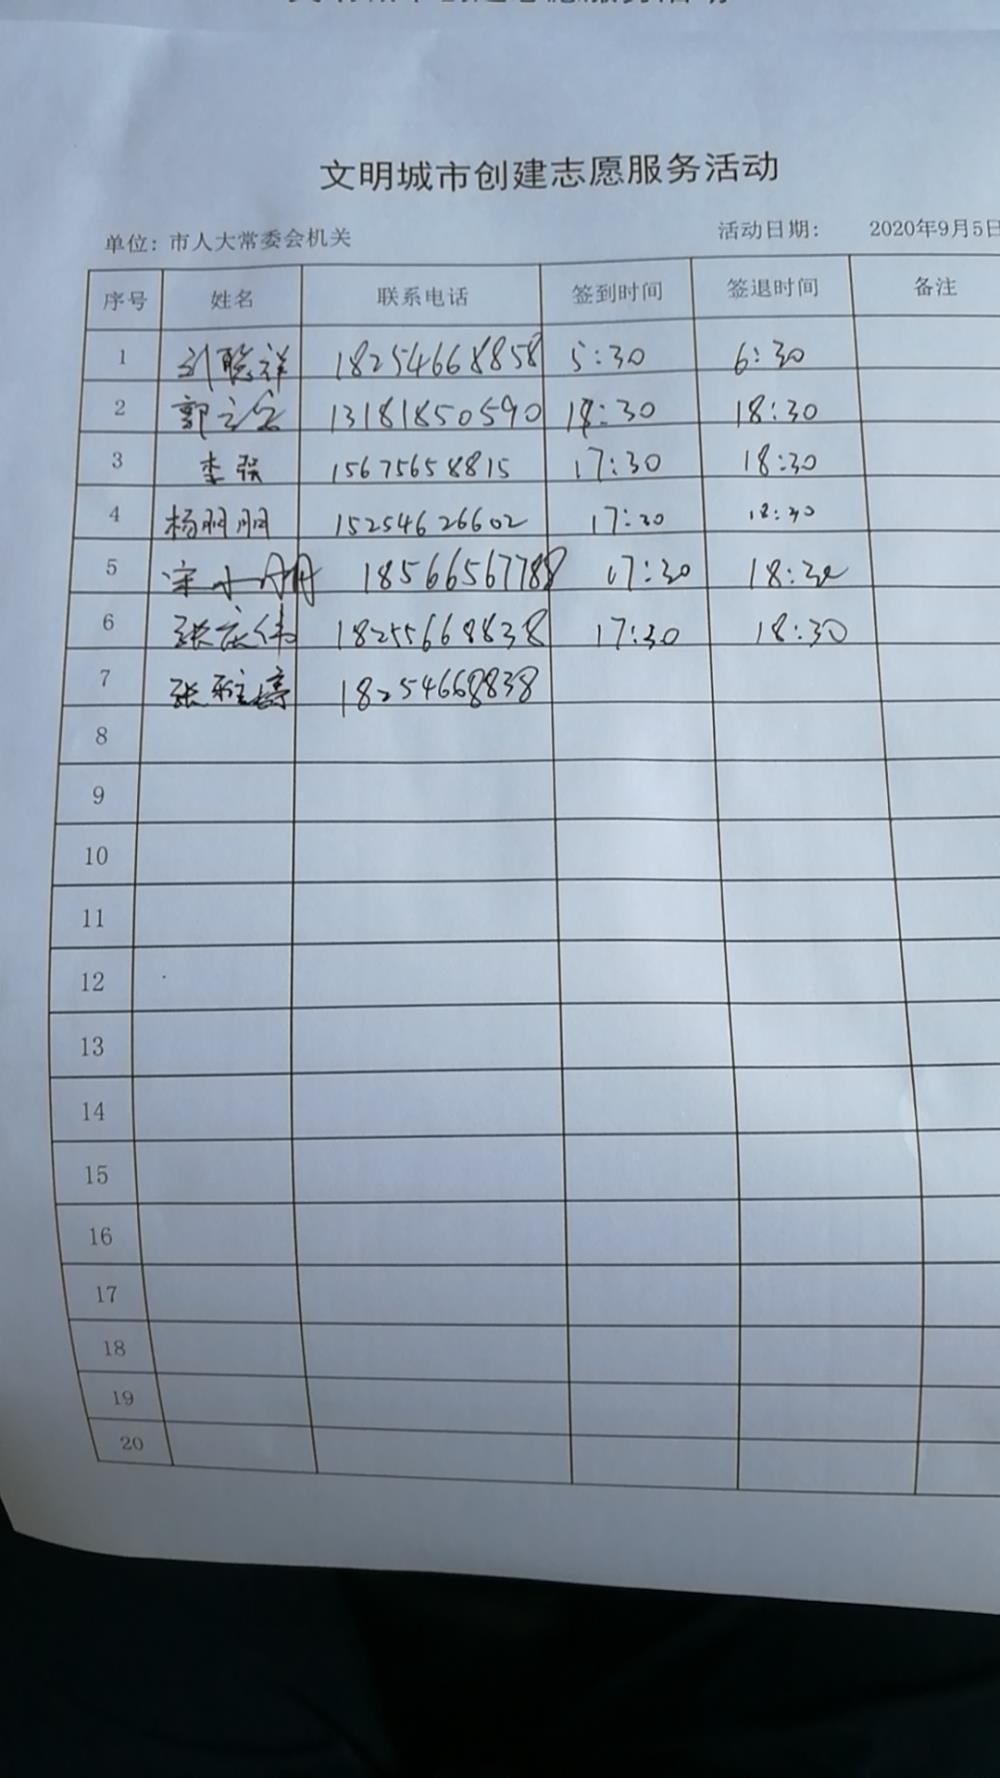 文明城市创建志愿服务活动
单位：市人大常委会机关 活动日期： 2020年9月5日
序号 姓名 联系电话 签到时间 签退时间 备注
1 刘聪祥 18254668858 5:30 6:30
2 郭立 13181850590 18:30 18:30
3 李强 15675658815 17:30 18:30
4 杨朋朋 15254626602 17:30 18:30
5 宋小丹 18566567788 17:30 18:30
6 张庆伟 18255668838 17:30 18:30
7 张雅婷 18254668838
8
9
10
11
12
13
14
15
16
17
18
19
20